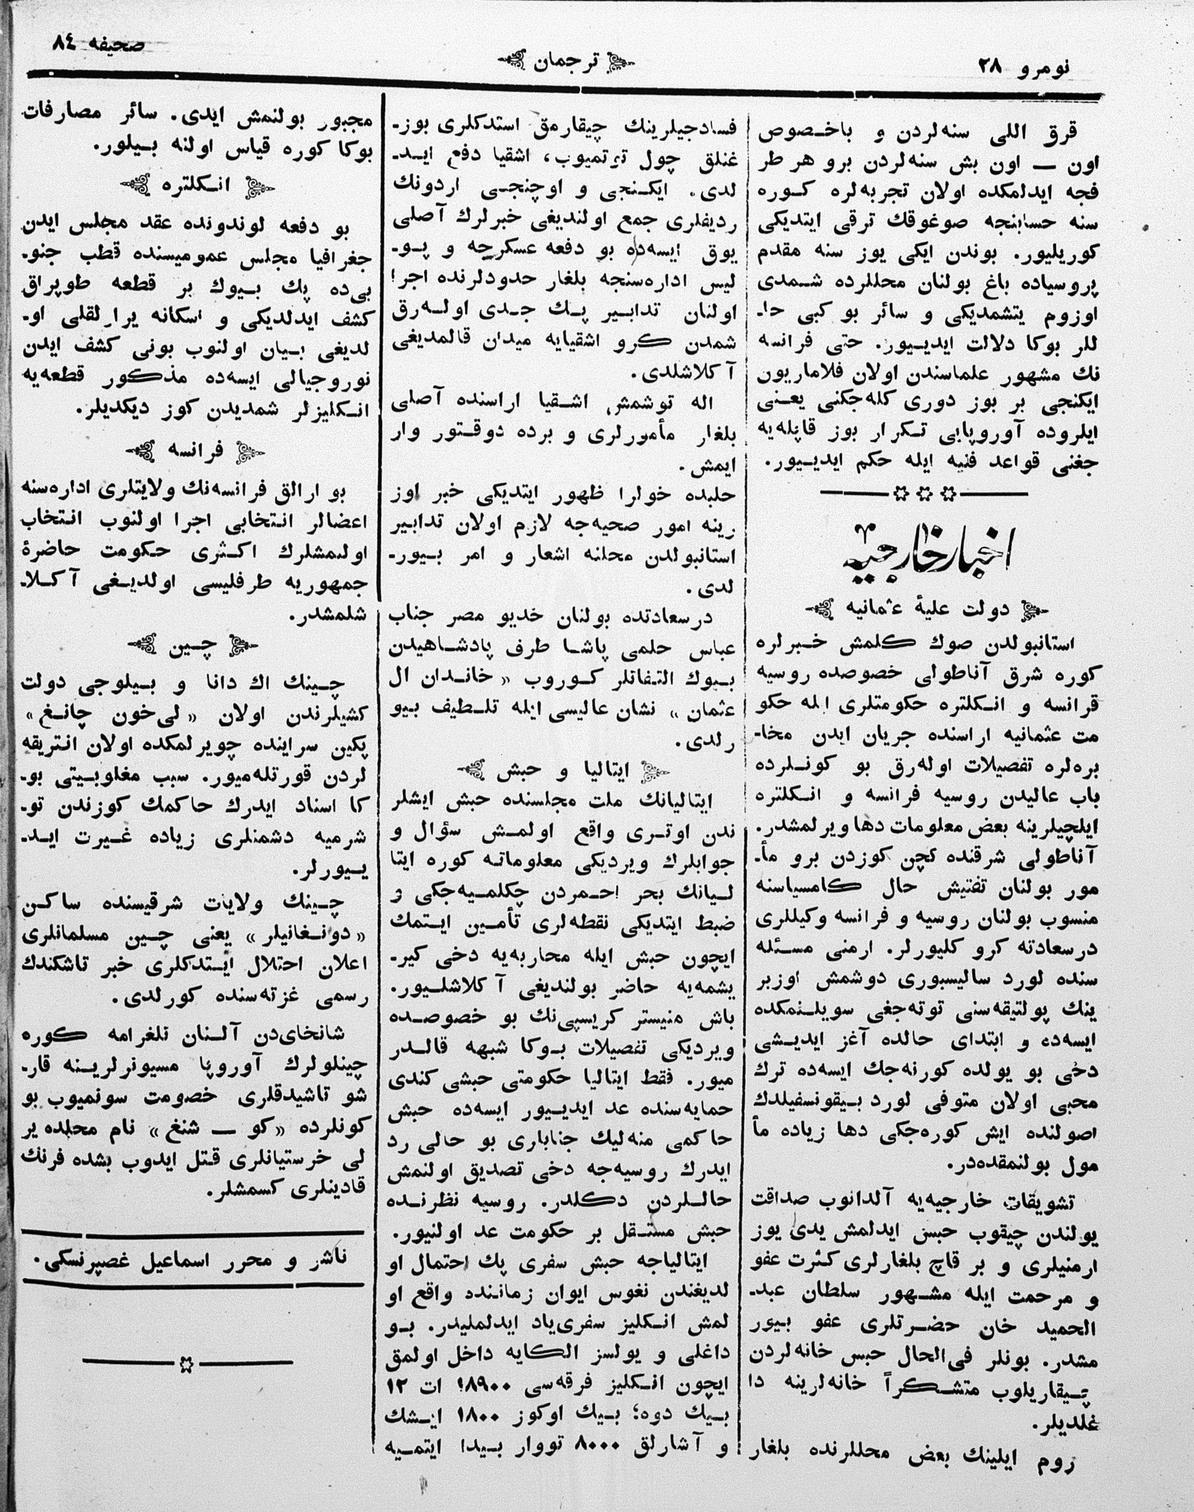 نومرو ٢٨
ترجمان
صحیفه ٨٤
قرق اللی سنه‌لردن و باخصوص
اون — اون بش سنه‌لردن برو هر طر
فجه ایدلمکده اولان تجربه‌لره کوره
سنه حسابنجه صوغوقك ترقی ایتدیکی
کوریلیور. بوندن ایکی یوز سنه مقدم
پروسیاده باغ بولنان محللرده شمدی
اوزوم یتشمدیکی و سائر بو کبی حا-
للر بوکا دلالت ایدییور. حتی فرانسه
نك مشهور علماسندن اولان فلاماریون
ایکنجی بر بوز دوری کله‌جکنی یعنی
ایلروده آوروپایی تکرار بوز قاپله‌یه
جغنی قواعد فنیه ایله حکم ایدییور.
اخبار خارجیه
دولت علیهٔ عثمانیه
استانبولدن صوك کلمش خبرلره
کوره شرق آناطولی خصوصده روسیه
فرانسه و انکلتره حکومتلری ایله حکو
مت عثمانیه اراسنده جریان ایدن مخا-
بره‌لره تفصیلات اوله‌رق بو کونلرده
باب عالیدن روسیه فرانسه و انکلتره
ایلچیلرینه بعض معلومات دها ویرلمشدر.
آناطولی شرقنده کچن کوزدن برو مأ-
مور بولنان تفتیش حال کامسیاسنه
منسوب بولنان روسیه و فرانسه وکیللری
درسعادته کرو کلیورلر. ارمنی مسئله
سنده لورد سالیسبوری دوشمش اوزبر
ینك پولتیقه‌سنی توته‌جغی سویلنمکده
ایسه‌ده و ابتدای حالده آغز ایدیشی
دخی بو یولده کورنه‌جك ایسه‌ده ترك
محبی اولان متوفی لورد بیقونسفیلدك
اصولنده ایش کوره‌جکی دها زیاده مأ
مول بولنمقده‌در.
تشویقات خارجیه‌یه آلدانوب صداقت
یولندن چیقوب حبس ایدلمش یدی یوز
ارمنیلری و بر قاچ بلغارلری کثرت عفو
و مرحمت ایله مشهور سلطان عبد-
الحمید خان حضرتلری عفو بیور
مشدر. بونلر فی‌الحال حبس خانه‌لردن
چیقاریلوب متشکراً خانه‌لرینه دا
غلدیلر.
روم ایلینك بعض محللرنده بلغار
فسادجیلرینك چیقارمق استدکلری بوز-
غنلق چول ترتمیوب، اشقیا دفع اید-
لدی. ایکنجی و اوچنجی اردونك
ردیفلری جمع اولندیغی خبرلرك آصلی
یوق ایسه‌ده بو دفعه عسکرجه و پو-
لیس اداره‌سنجه بلغار حدودلرنده اجرا
اولنان تدابیر پك جدی اوله‌رق
شمدن کرو اشقیایه میدان قالمدیغی
آکلاشلدی.
اله توشمش اشقیا اراسنده آصلی
بلغار مأمورلری و برده دوقتور وار
ایمش.
حلبده خولرا ظهور ایتدیکی خبر اوز
رینه امور صحیه‌جه لازم اولان تدابیر
استانبولدن محلنه اشعار و امر بیور-
لدی.
درسعادتده بولنان خدیو مصر جناب
عباس حلمی پاشا طرف پادشاهیدن
بیوك التفاتلر کوروب «خاندان ال
عثمان» نشان عالیسی ایله تلطیف بیو
رلدی.
ایتالیا و حبش
ایتالیانك ملت مجلسنده حبش ایشلر
ندن اوتری واقع اولمش سؤال و
جوابلرك ویردیکی معلوماته کوره ایتا
لیانك بحر احمردن چکلمیه‌جکی و
ضبط ایتدیکی نقطه‌لری تأمین ایتمك
ایچون حبش ایله محاربه‌یه دخی کیر-
یشمه‌یه حاضر بولندیغی آکلاشلیور.
باش منیستر کریسپی‌نك بو خصوصده
ویردیکی تفصیلات بوکا شبهه قالدر
میور. فقط ایتالیا حکومتی حبشی کندی
حمایه‌سنده عد ایدییور ایسه‌ده حبش
حاکمی منه‌لیك جنابلری بو حالی رد
ایدرك روسیه‌جه دخی تصدیق اولنمش
حاللردن دکلدر. روسیه نظرنده
حبش مستقل بر حکومت عد اولنیور.
ایتالیاجه حبش سفری پك احتمال او
لدیغندن نغوس ایوان زماننده واقع او
لمش انکلیز سفری‌یاد ایدلملیدر. بو
داغلی و یولسز الکایه داخل اولمق
ایچون انکلیز فرقه‌سی ١٨٩٠٠ ات ١٢
بیك دوه؛ بیك اوکوز ١٨٠٠ ایشك
و آشارلق ٨٠٠٠ تووار بیدا ایتمیه
مجبور بولنمش ایدی. سائر مصارفات
بوکا کوره قیاس اولنه بیلور.
انکلتره
بو دفعه لوندونده عقد مجلس ایدن
جغرافیا مجلس عمومیسنده قطب جنو-
بی‌ده پك بیوك بر قطعه طوپراق
کشف ایدلدیکی و اسکانه یرارلقلی او-
لدیغی بیان اولنوب بونی کشف ایدن
نوروجیالی ایسه‌ده مذکور قطعه‌یه
انکلیزلر شمدیدن کوز دیکدیلر.
فرانسه
بو ارالق فرانسه‌نك ولایتلری اداره‌سنه
اعضالر انتخابی اجرا اولنوب انتخاب
اولنمشلرك اکثری حکومت حاضرهٔ
جمهوریه طرفلیسی اولدیغی آکلا-
شلمشدر.
چین
چینك اك دانا و بیلوجی دولت
کشیلرندن اولان «لی‌خون چانغ»
پکین سراینده چویرلمکده اولان انتریقه
لردن قورتله‌میور. سبب مغلوبیتی بو-
کا اسناد ایدرك حاکمك کوزندن تو-
شرمیه دشمنلری زیاده غیرت اید-
ییورلر.
چینك ولایات شرقیسنده ساکن
«دونغانیلر» یعنی چین مسلمانلری
اعلان احتلال ایستدکلری خبر تاشکندك
رسمی غزته‌سنده کورلدی.
شانخای‌دن آلنان تلغرامه کوره
چینلولرك آوروپا مسیونرلرینه قار-
شو تاشیدقلری خصومت سونمیوب بو
کونلرده «کو — شنغ» نام محلده یر
لی خرستیانلری قتل ایدوب بشده فرنك
قادینلری کسمشلر.
ناشر و محرر اسماعیل غصپرنسکی.